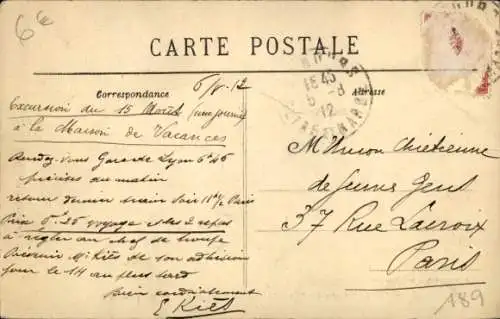 6e
CARTE POSTALE
Correspondance
Adresse
6/8.12
18 45
5 -8
12
Excursion du 15 Août (une journée)
à la Maison de Vacances
Rendez-vous Gare de Lyon 6h 45
précises du matin
retour dernier train soir 11h 1/2 Paris
Prix 5f 25 voyage et les 2 repas
à régler au chef de troupe
Prévenir M. Kiès de son adhésion
pour le 14 au plus tard
Bien cordialement
E Kiès
M Union Chrétienne
de Jeunes Gens
37 Rue Lacroix
Paris
189